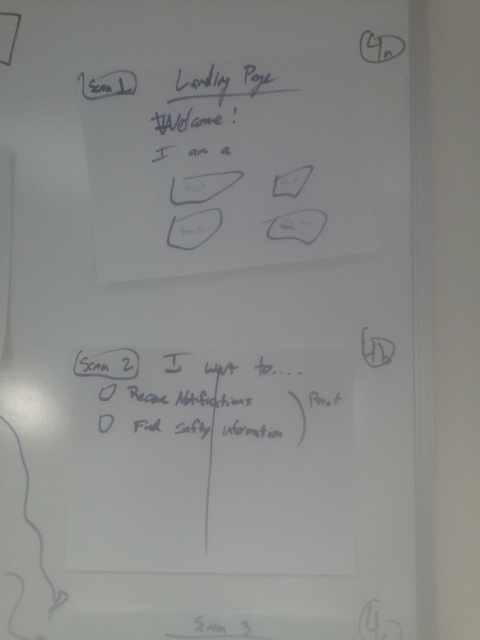 Screen 1
Landing Page
Welcome!
I am a
4a
Screen 2
I want to....
Receive Notifications
Find Safety information
Parent
4b
Screen 3